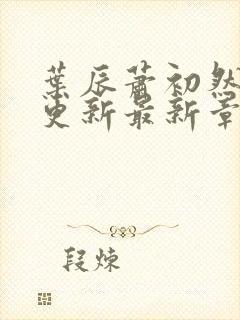 葉辰蕭初然
更新最新章
段煉